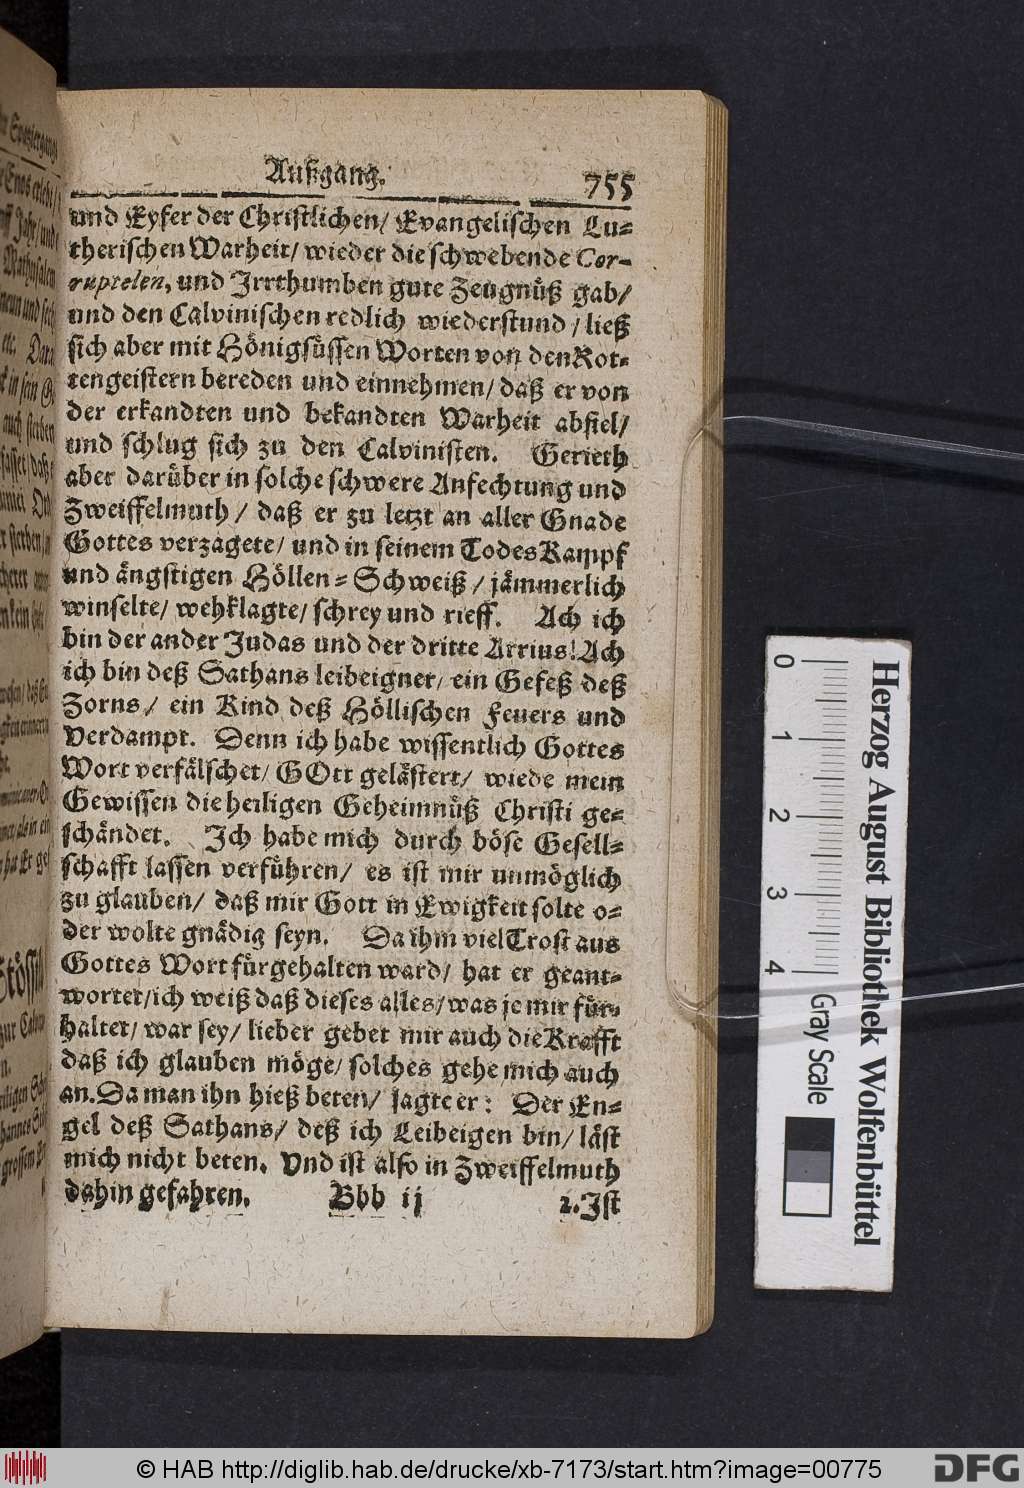 Außgang. 755
und Eyfer der Christlichen/ Evangelischen Lu-
therischen Warheit/ wieder die schwebende Cor-
ruptelen, und Irrthumben gute Zeugnüß gab/
und den Calvinischen redlich wiederstund / ließ
sich aber mit Hönigsüssen Worten von den Rot-
tengeistern bereden und einnehmen/ daß er von
der erkandten und bekandten Warheit abfiel/
und schlug sich zu den Calvinisten. Gerieth
aber darüber in solche schwere Anfechtung und
Zweiffelmuth / daß er zu letzt an aller Gnade
Gottes verzagete/ und in seinem Todes Kampf
und ängstigen Höllen-Schweiß / jämmerlich
winselte/ wehklagte/ schrey und rieff. Ach ich
bin der ander Judas und der dritte Arrius! Ach
ich bin deß Sathans leibeigner/ ein Gefeß deß
Zorns/ ein Kind deß Höllischen Feuers und
Verdampt. Denn ich habe wissentlich Gottes
Wort verfälschet/ GOtt gelästert/ wiede mein
Gewissen die heiligen Geheimnüß Christi ge-
schändet. Ich habe mich durch böse Gesell-
schafft lassen verführen/ es ist mir unmöglich
zu glauben/ daß mir Gott in Ewigkeit solte o-
der wolte gnädig seyn. Da ihm viel Trost aus
Gottes Wort fürgehalten ward/ hat er geant-
wortet/ ich weiß daß dieses alles/ was je mir für-
haltet/ war sey/ lieber gebet mir auch die Krafft
daß ich glauben möge/ solches gehe mich auch
an. Da man ihn hieß beten/ sagte er: Der En-
gel deß Sathans/ deß ich Leibeigen bin/ läst
mich nicht beten. Und ist also in Zweiffelmuth
dahin gefahren. Bbb ij 2. Ist
0 1 2 3 4
Gray Scale
Herzog August Bibliothek Wolfenbüttel
© HAB http://diglib.hab.de/drucke/xb-7173/start.htm?image=00775
DFG